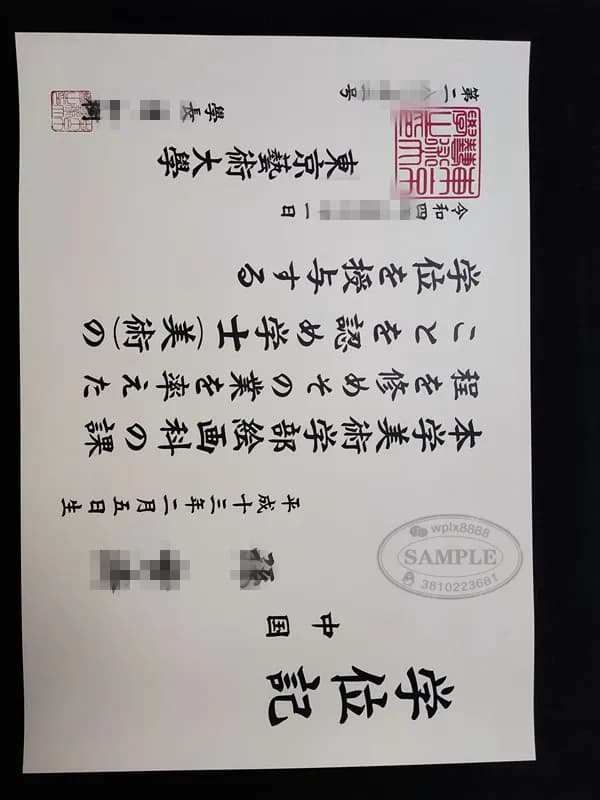 学位記
中国
平成十三年二月五日生
本学美術学部絵画科の課
程を修めその業を率えた
ことを認め学士(美術)の
学位を授与する
令和四 一日
東京藝術大學
學長
第二 号
wplx8888
SAMPLE
3810223681